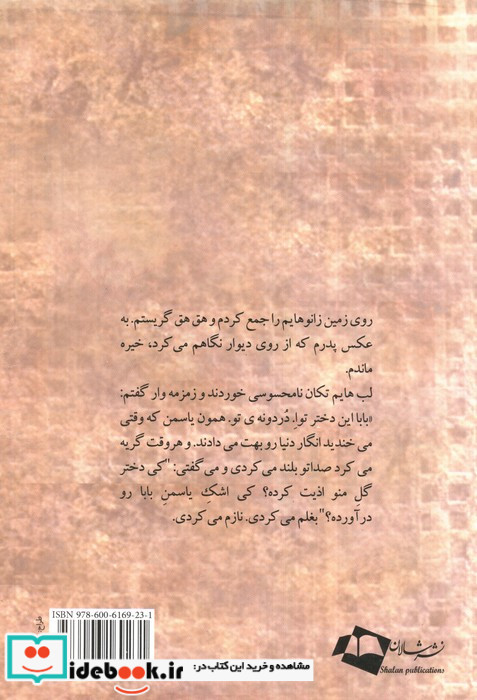 روی زمین زانوهایم را جمع کردم و هق هق گریستم. به
عکس پدرم که از روی دیوار نگاهم می‌کرد، خیره
ماندم.
لب هایم تکان نامحسوسی خوردند و زمزمه وار گفتم:
«بابا این دختر توا. دُردونه ی تو. همون یاسمن که وقتی
می خندید انگار دنیا رو بهت می دادند. و هروقت گریه
می کرد صداتو بلند می کردی و می‌گفتی: "کی دختر
گل منو اذیت کرده؟ کی اشکِ یاسمنِ بابا رو
درآورده؟" بغلم می‌کردی. نازم می‌کردی.
طراح
ISBN 978-600-6169-23-1
نشر شالان
Shalan publications
idebook.ir
مشاهده و خرید این کتاب در: